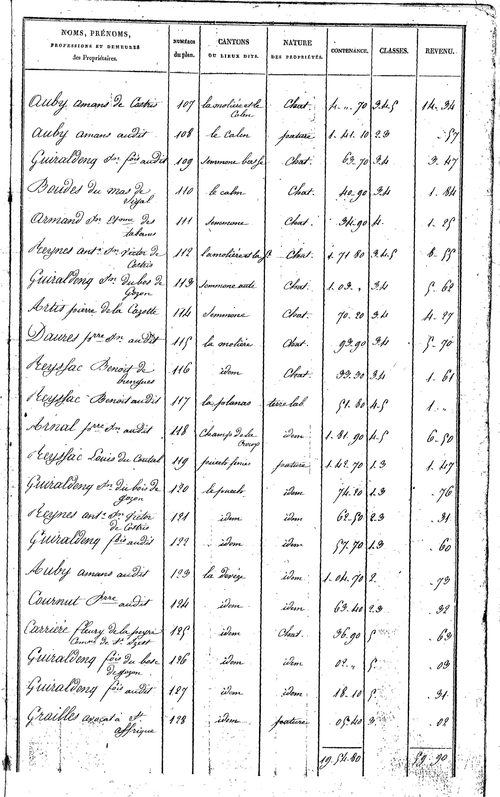 NOMS, PRÉNOMS, PROFESSIONS ET DEMEURES des Propriétaires. NUMÉROS du plan. CANTONS OU LIEUX DITS. NATURE DES PROPRIÉTÉS. CONTENANCE. CLASSES. REVENU.
Auby amans de Castris 107 la molière et le Calm Chat. 4. „. 70 3.4.5 14. 34
Auby amans audit 108 le calm pature 1. 41. 10 2.3 . 57
Guiraldenq fois audit 109 Semmone basse Chat. 63. 70 3.4 3. 47
Boudes du mas de 110 le calm Chat. 40. 90 3.4 1. 84
Armand des tabarns 111 Semmone Chat. 34. 90 4. 1. 25
Reynes ant. victor de Castris 112 la molière et la Chat. 1. 71. 80 3.4.5 8. 55
Guiraldenq du bos de Gozon 113 Semmone aute Chat. 1. 03. „ 3.4 5. 62
Artis pierre de la Cazotte 114 Semmone Chat. 70. 20 3.4 4. 27
Daures pre audit 115 la molière Chat. 93. 90 3.4 5. 70
Reyssac Benoit de 116 idem Chat. 33. 30 3.4 1. 61
Reyssac Benoit audit 117 la planas terre lab. 51. 80 4.5 1. „
Arnal pre audit 118 Champ de la idem 1. 81. 90 4.5 6. 50
Reyssac Louis du Coutal 119 pature 1. 42. 70 1.3 1. 47
Guiraldenq du bois de gozon 120 le puech idem 74. 20 1.3 . 76
Reynes ant. victor de Castris 121 idem idem 62. 50 2.3 . 31
Guiraldenq fois audit 122 idem idem 57. 70 1.3 . 60
Auby amans audit 123 la devèze idem 1. 04. 70 2. . 73
Cournut pierre audit 124 idem idem 63. 40 2.3 . 32
Carrière fleury de la peyre 125 idem Chat. 36. 90 5 . 63
Guiraldenq fois du bosc de gozon 126 idem idem 02. „ 5. . 03
Guiraldenq fois audit 127 idem idem 18. 10 5. . 31
Grailles avocat à St. affrique 128 idem pature 05. 40 3. . 02
19. 54. 80 59. 90